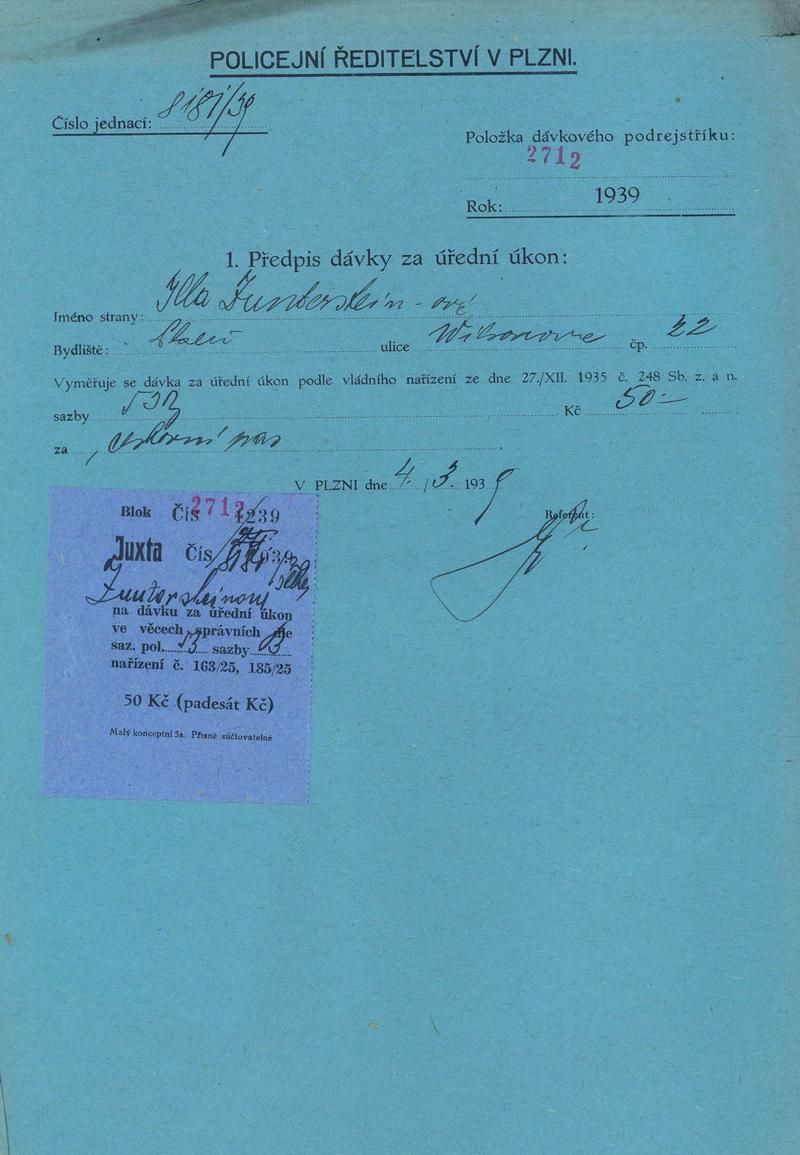 POLICEJNÍ ŘEDITELSTVÍ V PLZNI.
Číslo jednací: 8181/39
Položka dávkového podrejstříku:
2712
Rok: 1939
1. Předpis dávky za úřední úkon:
Jméno strany: Zunterstein-ová
Bydliště: ulice Wilsonova čp. 22
Vyměřuje se dávka za úřední úkon podle vládního nařízení ze dne 27./XII. 1935 č. 248 Sb. z. a n.
sazby Kč 50-
za cestovní pas
V PLZNI dne 4. /3. 1939
Referent:
Blok Čís 2712 239
Juxta Čís
Zuntersteinová
na dávku za úřední úkon
ve věcech správních dle
saz. pol. 3 sazby B
nařízení č. 163/25, 185/25
50 Kč (padesát Kč)
Malý konceptní 5a. Přísně súčtovatelné